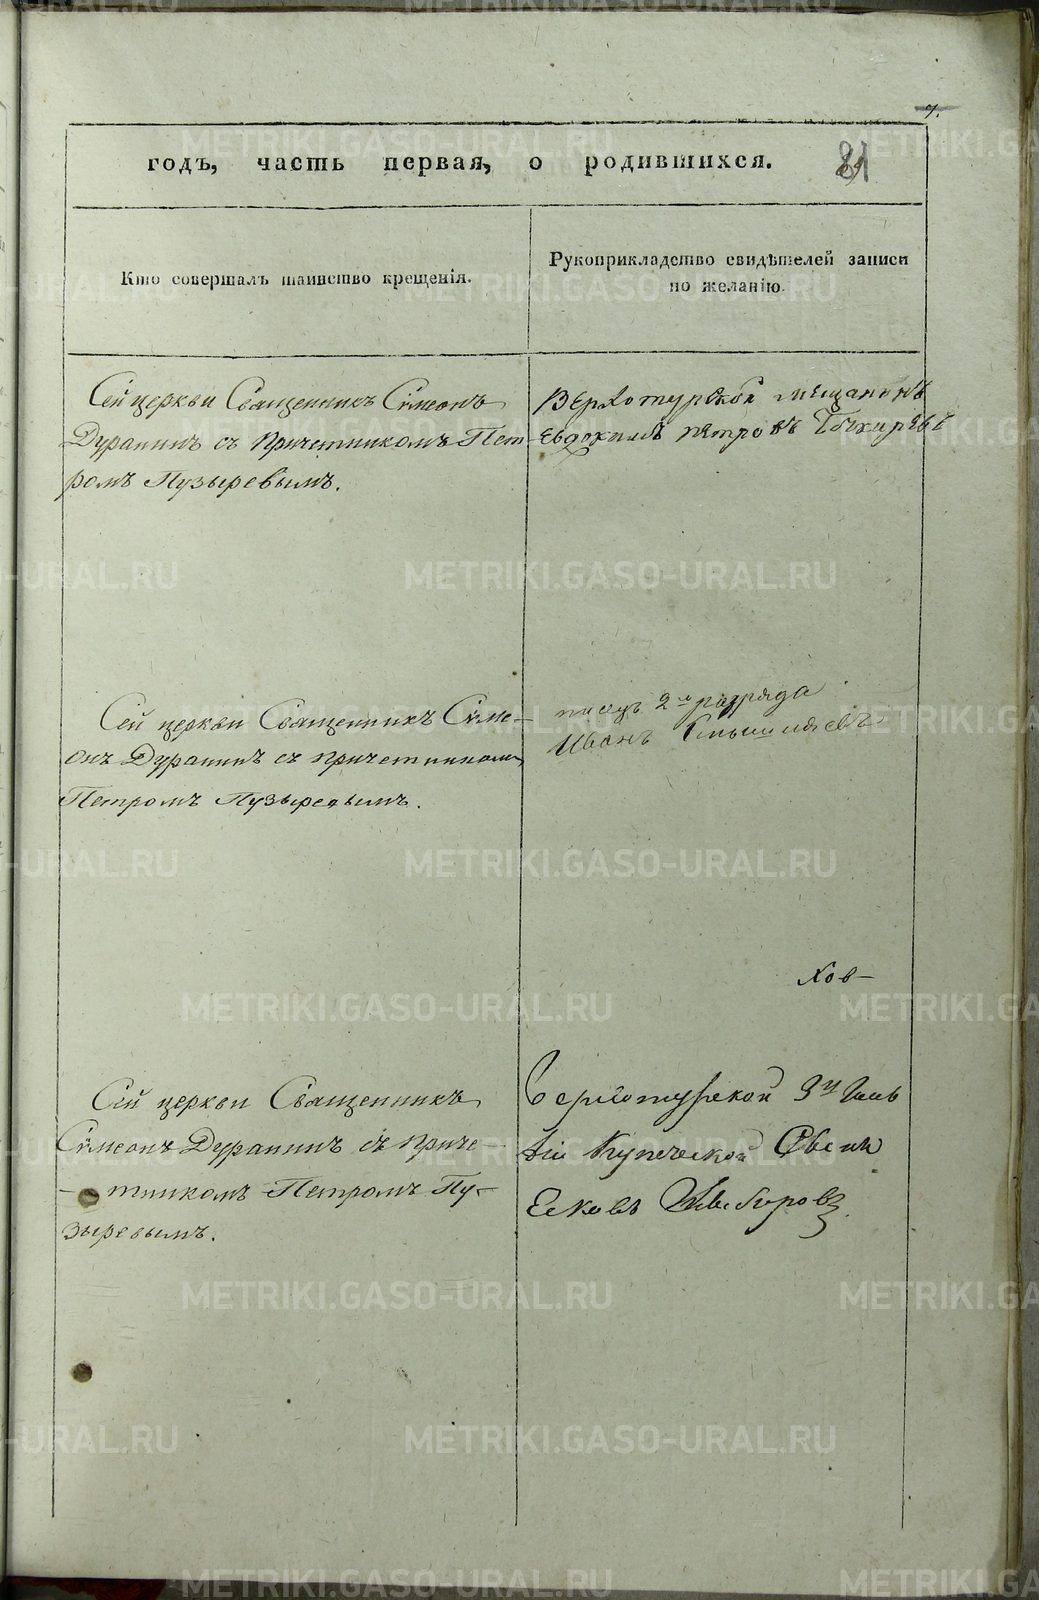 7.
годъ, часть первая, о родившихся.
81
Кто совершалъ таинство крещенія.
Рукоприкладство свидѣтелей записи
по желанію.
Сей церкви Священникъ Симеонъ
Дуранинъ съ причетникомъ Пет-
ромъ Пузыревымъ.
Верхотурской мѣщанинъ
Евдокимъ петровъ
Сей церкви Священникъ Симе-
онъ Дуранинъ съ причетникомъ
Петромъ Пузыревымъ.
писецъ 2го разряда
Иванъ
Хов-
Сей церкви Священникъ
Симеонъ Дуранинъ съ приче-
тникомъ Петромъ Пу-
зыревымъ.
Верхотурской 3й Гиль
діи Купеческой Сынъ
METRIKI.GASO-URAL.RU